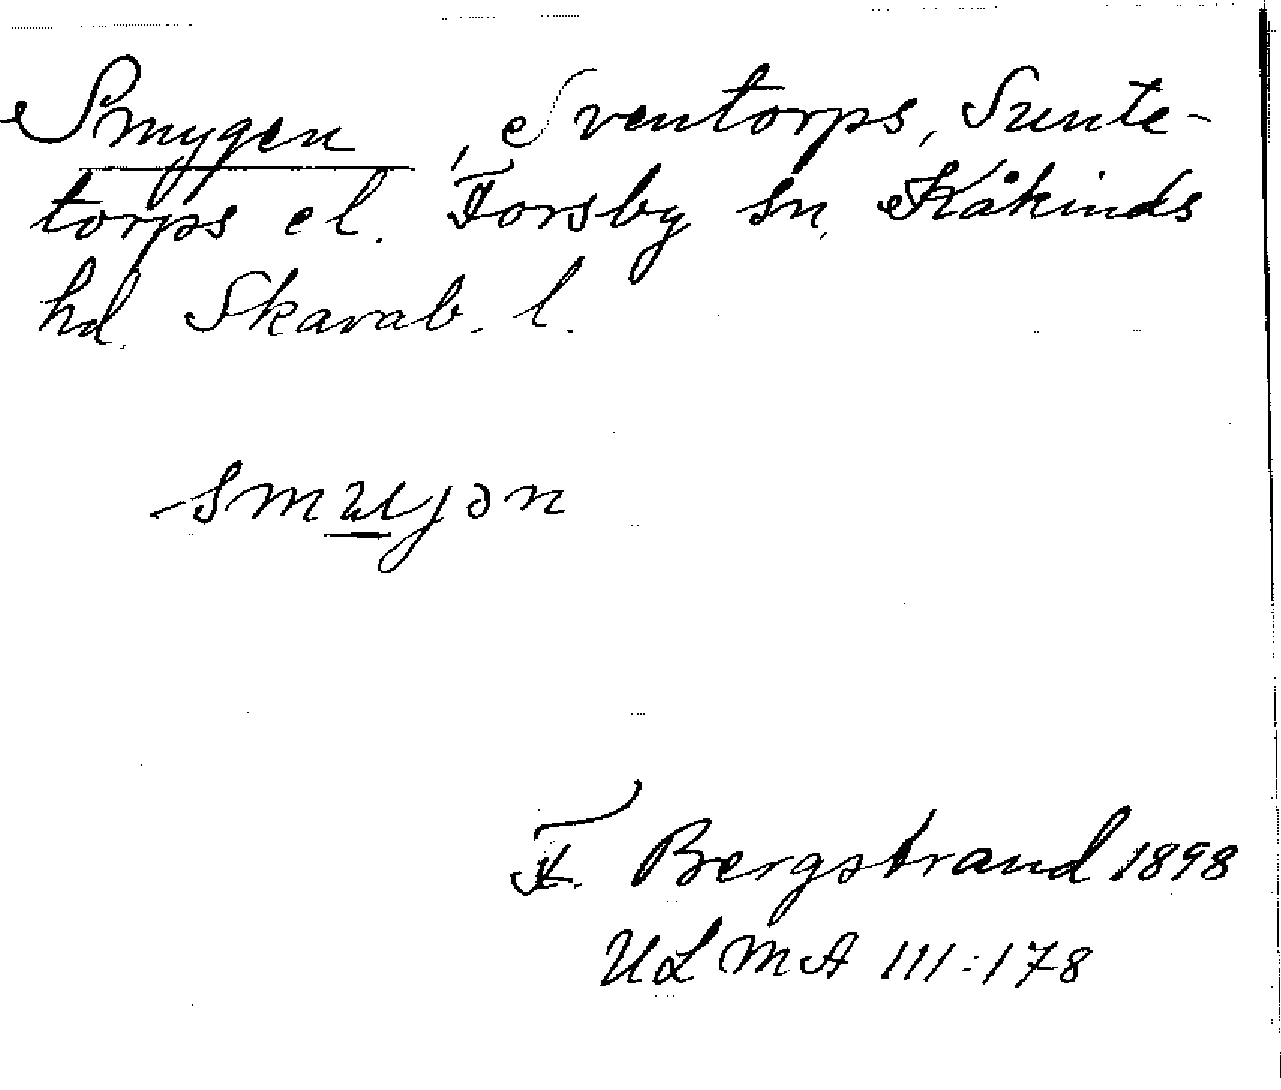 Smygen, Sventorps, Sunte-
torps el. Forsby sn, Kåkinds
hd. Skarab. l.
smyjən
F. Bergstrand 1898
ULMA 111:178